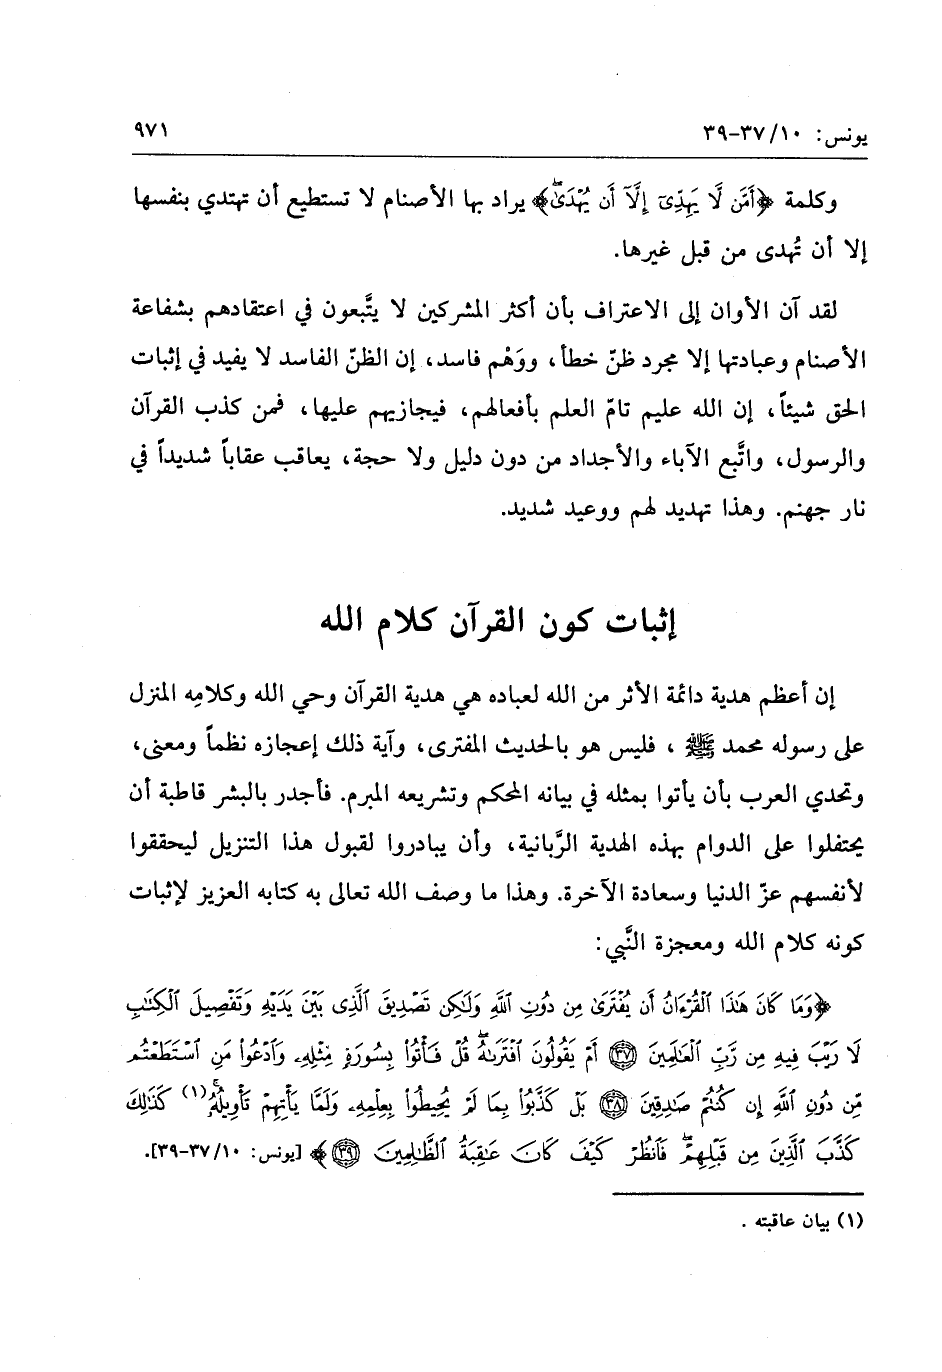 يونس: ١٠/ ٣٧-٣٩ ٩٧١
وكلمة ﴿أَمَّن لَّا يَهِدِّىٓ إِلَّآ أَن يُهْدَىٰۖ﴾ يراد بها الأصنام لا تستطيع أن تهتدي بنفسها
إلا أن تُهدى من قبل غيرها.
لقد آن الأوان إلى الاعتراف بأن أكثر المشركين لا يتَّبعون في اعتقادهم بشفاعة
الأصنام وعبادتها إلا مجرد ظنّ خطأ، ووَهْم فاسد، إن الظنّ الفاسد لا يفيد في إثبات
الحق شيئاً، إن الله عليم تامّ العلم بأفعالهم، فيجازيهم عليها، فمن كذب القرآن
والرسول، واتَّبع الآباء والأجداد من دون دليل ولا حجة، يعاقب عقاباً شديداً في
نار جهنم. وهذا تهديد لهم ووعيد شديد.
إثبات كون القرآن كلام الله
إن أعظم هدية دائمة الأثر من الله لعباده هي هدية القرآن وحي الله وكلامِه المنزل
على رسوله محمد ﷺ ، فليس هو بالحديث المفترى، وآية ذلك إعجازه نظماً ومعنى،
وتحدي العرب بأن يأتوا بمثله في بيانه المحكم وتشريعه المبرم. فأجدر بالبشر قاطبة أن
يحتفلوا على الدوام بهذه الهدية الرَّبانية، وأن يبادروا لقبول هذا التنزيل ليحققوا
لأنفسهم عزّ الدنيا وسعادة الآخرة. وهذا ما وصف الله تعالى به كتابه العزيز لإثبات
كونه كلام الله ومعجزة النَّبي:
﴿وَمَا كَانَ هَٰذَا ٱلْقُرْءَانُ أَن يُفْتَرَىٰ مِن دُونِ ٱللَّهِ وَلَٰكِن تَصْدِيقَ ٱلَّذِى بَيْنَ يَدَيْهِ وَتَفْصِيلَ ٱلْكِتَٰبِ
لَا رَيْبَ فِيهِ مِن رَّبِّ ٱلْعَٰلَمِينَ ٣٧ أَمْ يَقُولُونَ ٱفْتَرَىٰهُۖ قُلْ فَأْتُوا۟ بِسُورَةٍ مِّثْلِهِۦ وَٱدْعُوا۟ مَنِ ٱسْتَطَعْتُم
مِّن دُونِ ٱللَّهِ إِن كُنتُمْ صَٰدِقِينَ ٣٨ بَلْ كَذَّبُوا۟ بِمَا لَمْ يُحِيطُوا۟ بِعِلْمِهِۦ وَلَمَّا يَأْتِهِمْ تَأْوِيلُهُۥۚ (١) كَذَٰلِكَ
كَذَّبَ ٱلَّذِينَ مِن قَبْلِهِمْۖ فَٱنظُرْ كَيْفَ كَانَ عَٰقِبَةُ ٱلظَّٰلِمِينَ ٣٩﴾ [يونس: ١٠/ ٣٧-٣٩].
(١) بيان عاقبته .